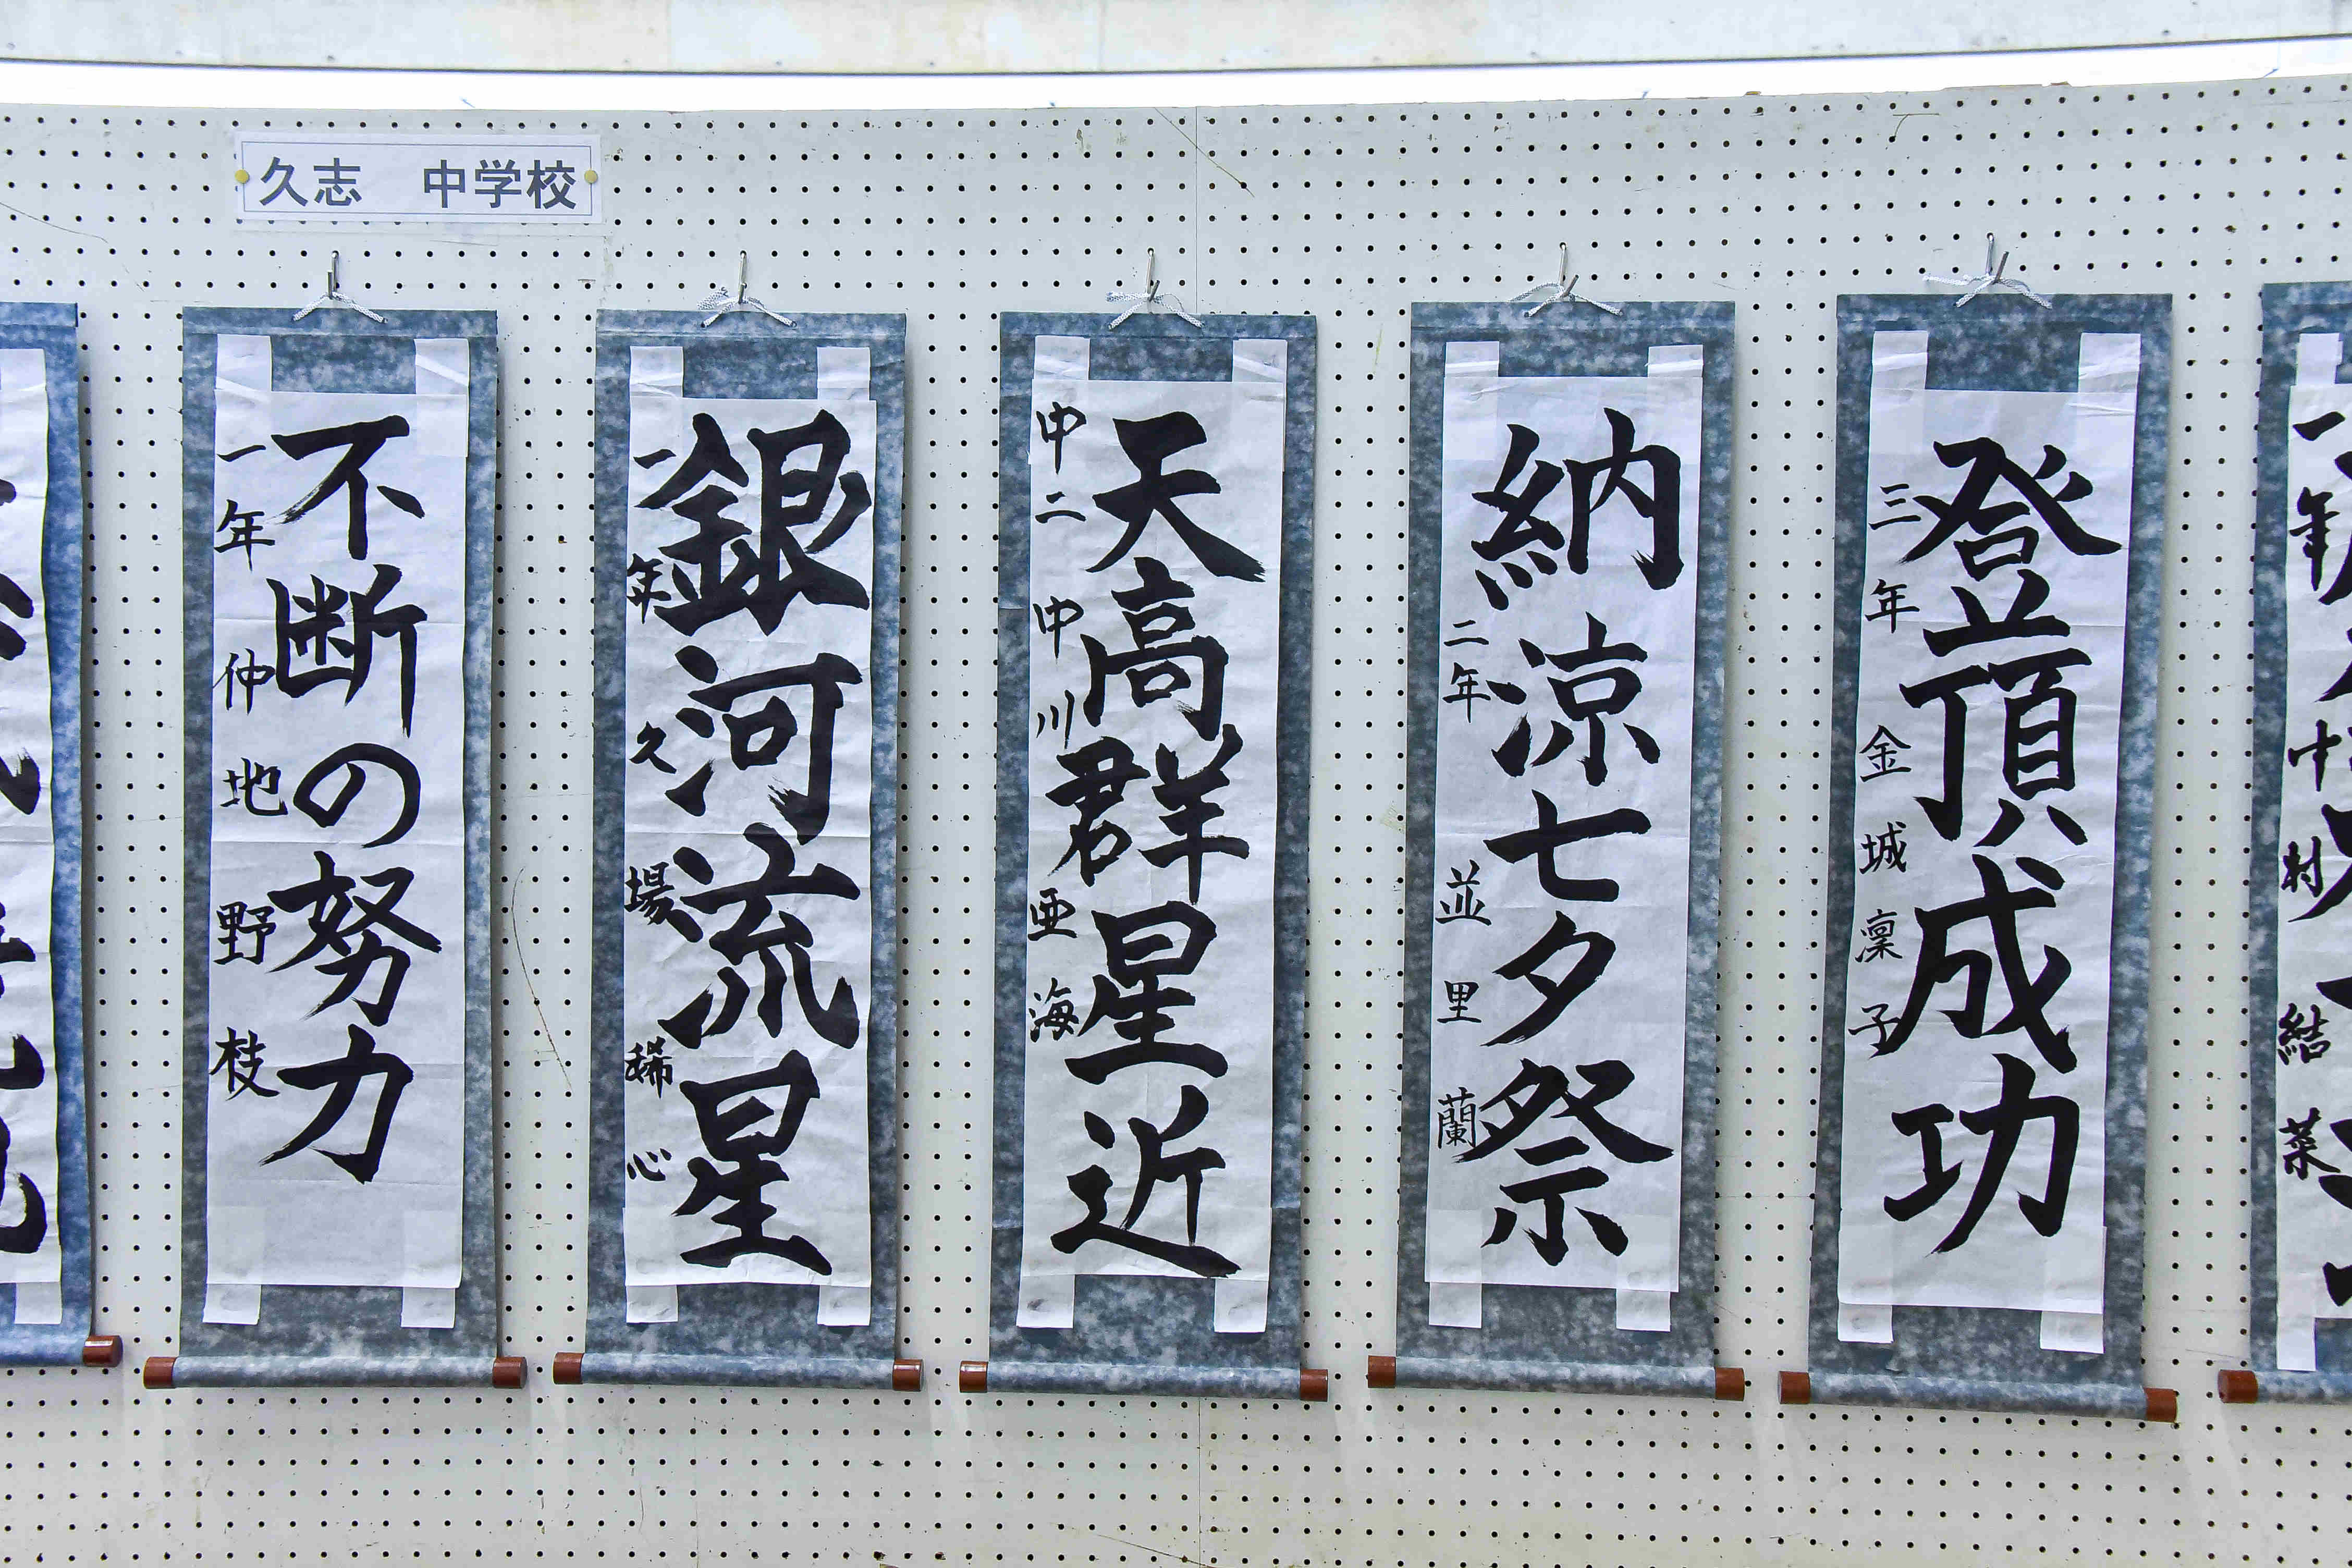 久志 中学校
不断の努力
一年 仲地 野枝
銀河流星
一年 久場 稀心
天高群星近
中二 中川 亜海
納涼七夕祭
二年 並里 蘭
登頂成功
三年 金城 凜子
一年 中村 結菜